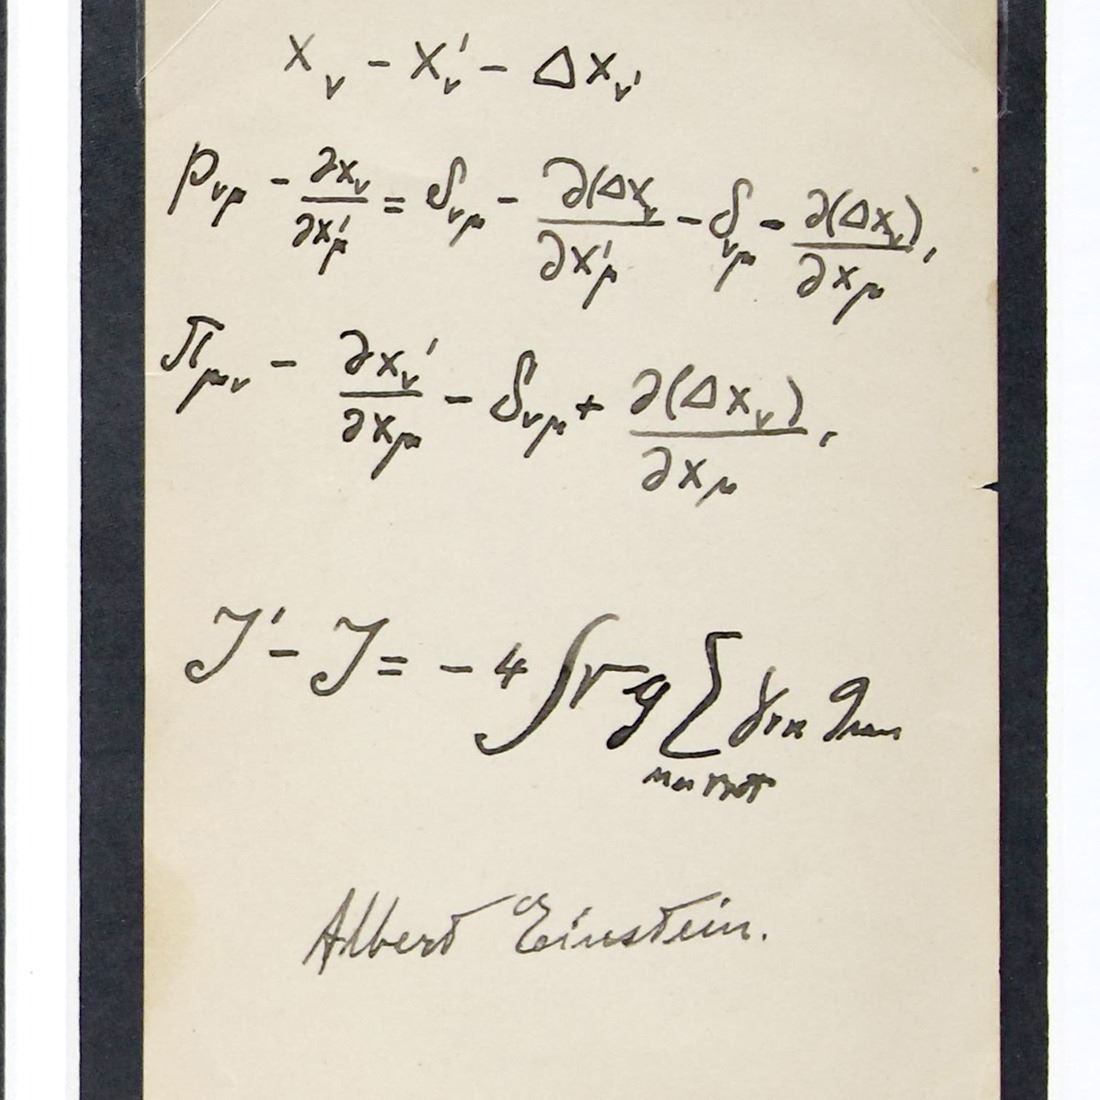 x_ν - x'_ν - Δx_ν'
p_νμ - ∂x_ν/∂x'_μ = δ_νμ - ∂(Δx_ν/∂x'_μ - δ_νμ - ∂(Δx_ν)/∂x_μ,
π_μν - ∂x'_ν/∂x_μ - δ_νμ + ∂(Δx_ν)/∂x_μ,
J' - J = - 4 ∫ √g Σ γ g
Albert Einstein.